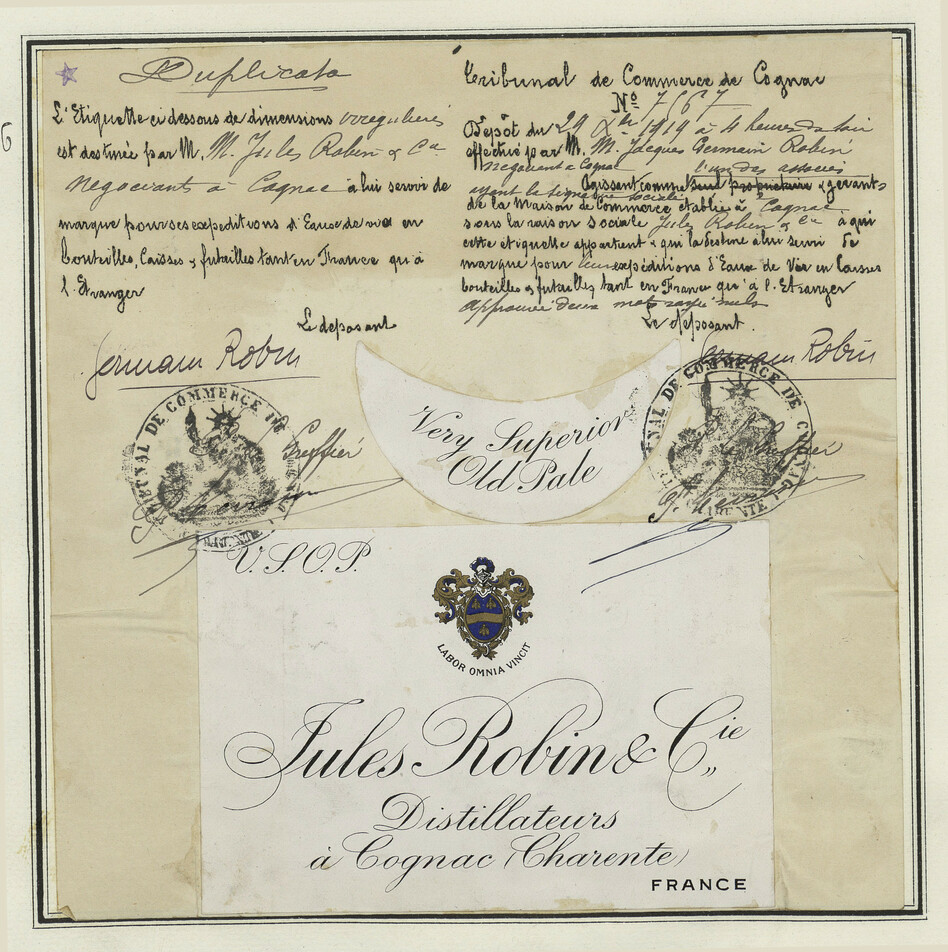 Duplicata
L'Etiquette ci dessous de dimensions irregulieres
est destinée par M. M. Jules Robin & Cie
negociants à Cognac à lui servir de
marque pour ses expeditions d'Eaux de vie en
bouteilles, Caisses & futailles tant en France qu'à
l'Etranger
Le déposant
Germain Robin
Greffier
Tribunal de Commerce de Cognac
No 7167
Dépôt du 29 Xbre 1919 à 4 heures du soir
effectué par M. M. Jacques Germain Robin
négociant à Cognac l'un des associés
ayant la signature sociale Agissant comme seul propriétaire & gérant
de la Maison de Commerce établie à Cognac
sous la raison sociale Jules Robin & Cie à qui
cette étiquette appartient & qui la destine à lui servir de
marque pour leurs expéditions d'Eaux de Vie en Caisses
bouteilles & futailles tant en France qu'à l'Etranger
Approuvé deux mots rayés nuls
Le déposant.
Germain Robin
Le Greffier
TRIBUNAL DE COMMERCE DE
TRIBUNAL DE COMMERCE DE COGNAC
CHARENTE
Very Superior
Old Pale
V.S.O.P.
LABOR OMNIA VINCIT
Jules Robin & Cie,,
Distillateurs
à Cognac (Charente)
FRANCE